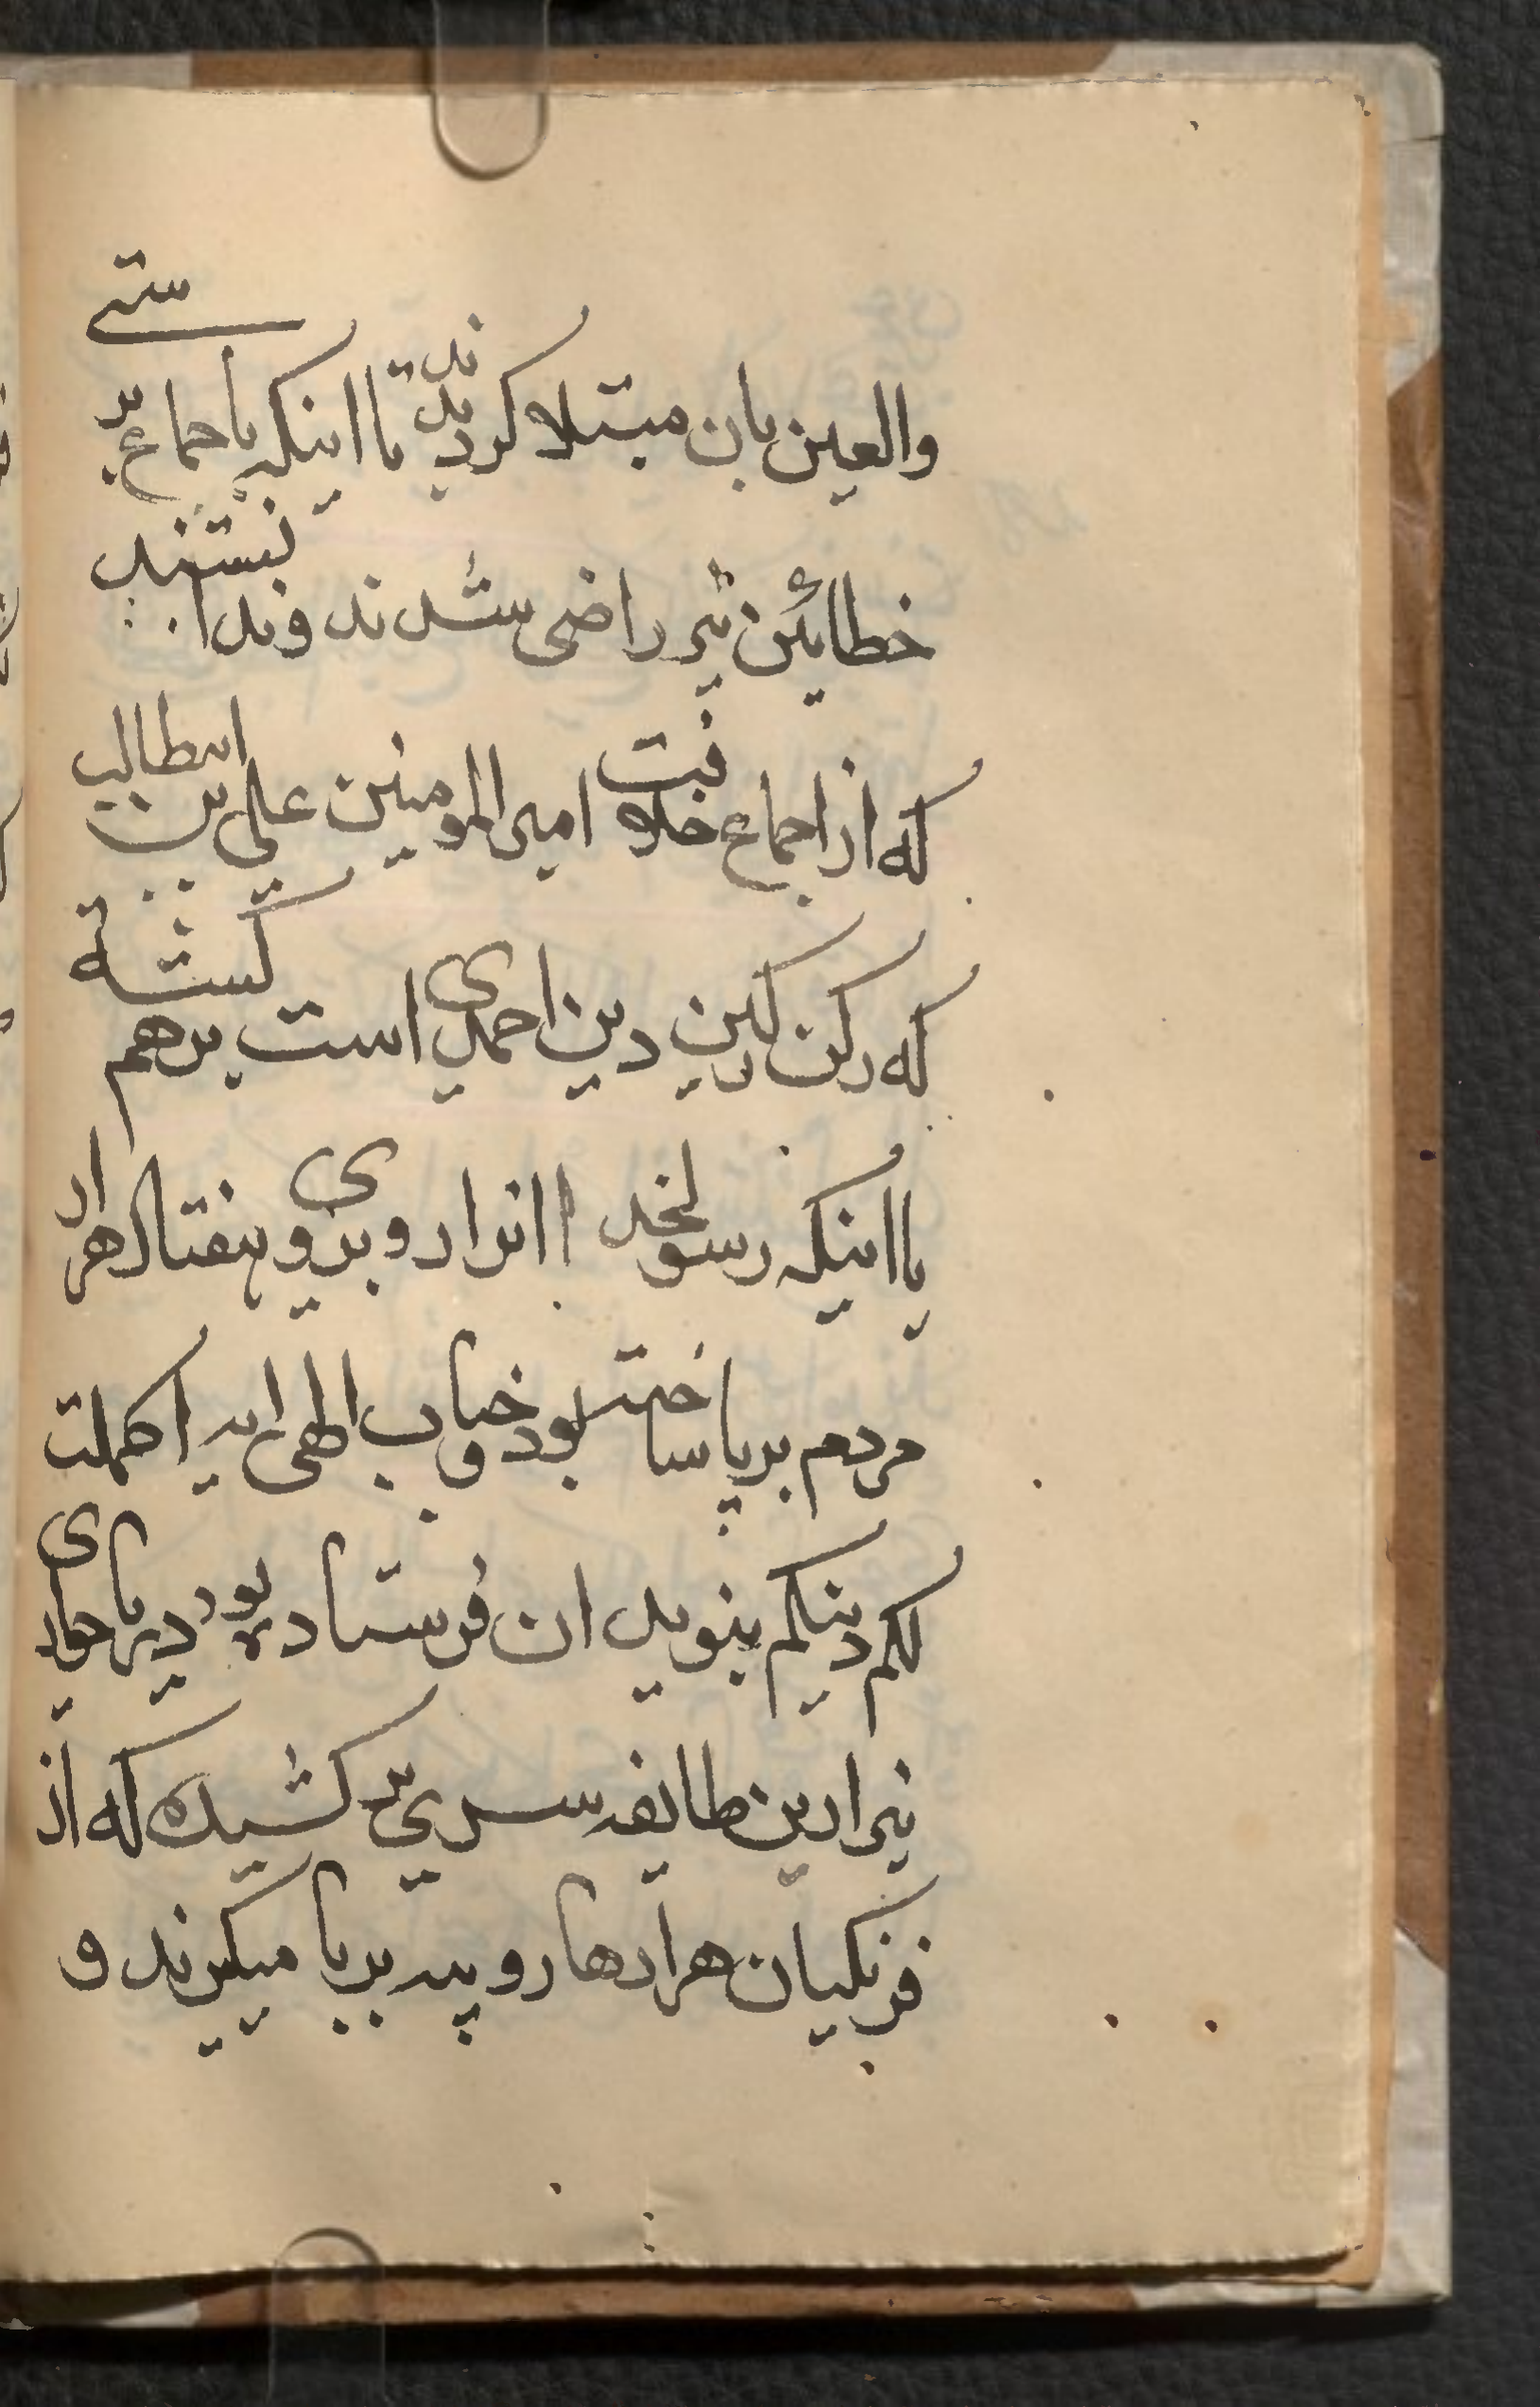 والعین بان مبتلا کردیدند تا اینکه باجماع ستی
خطائین نیز راضی شدند و ندانستند
که از اجماع خلافت امیرالمومنین علی بن ابیطالب
که رکن رکین دین احمدی است برهم کشته
با اینکه رسولخدا انرا روبروی هفتاد هزار
مردم برپا ساخته بود و جناب الهی ایه اکملت
لکم دینکم بنوید ان فرستاده بود در پای
نیز ازین طایفه سری بر کشیده که از
فرنکیان هزارها روپیه برپا میکیرند و